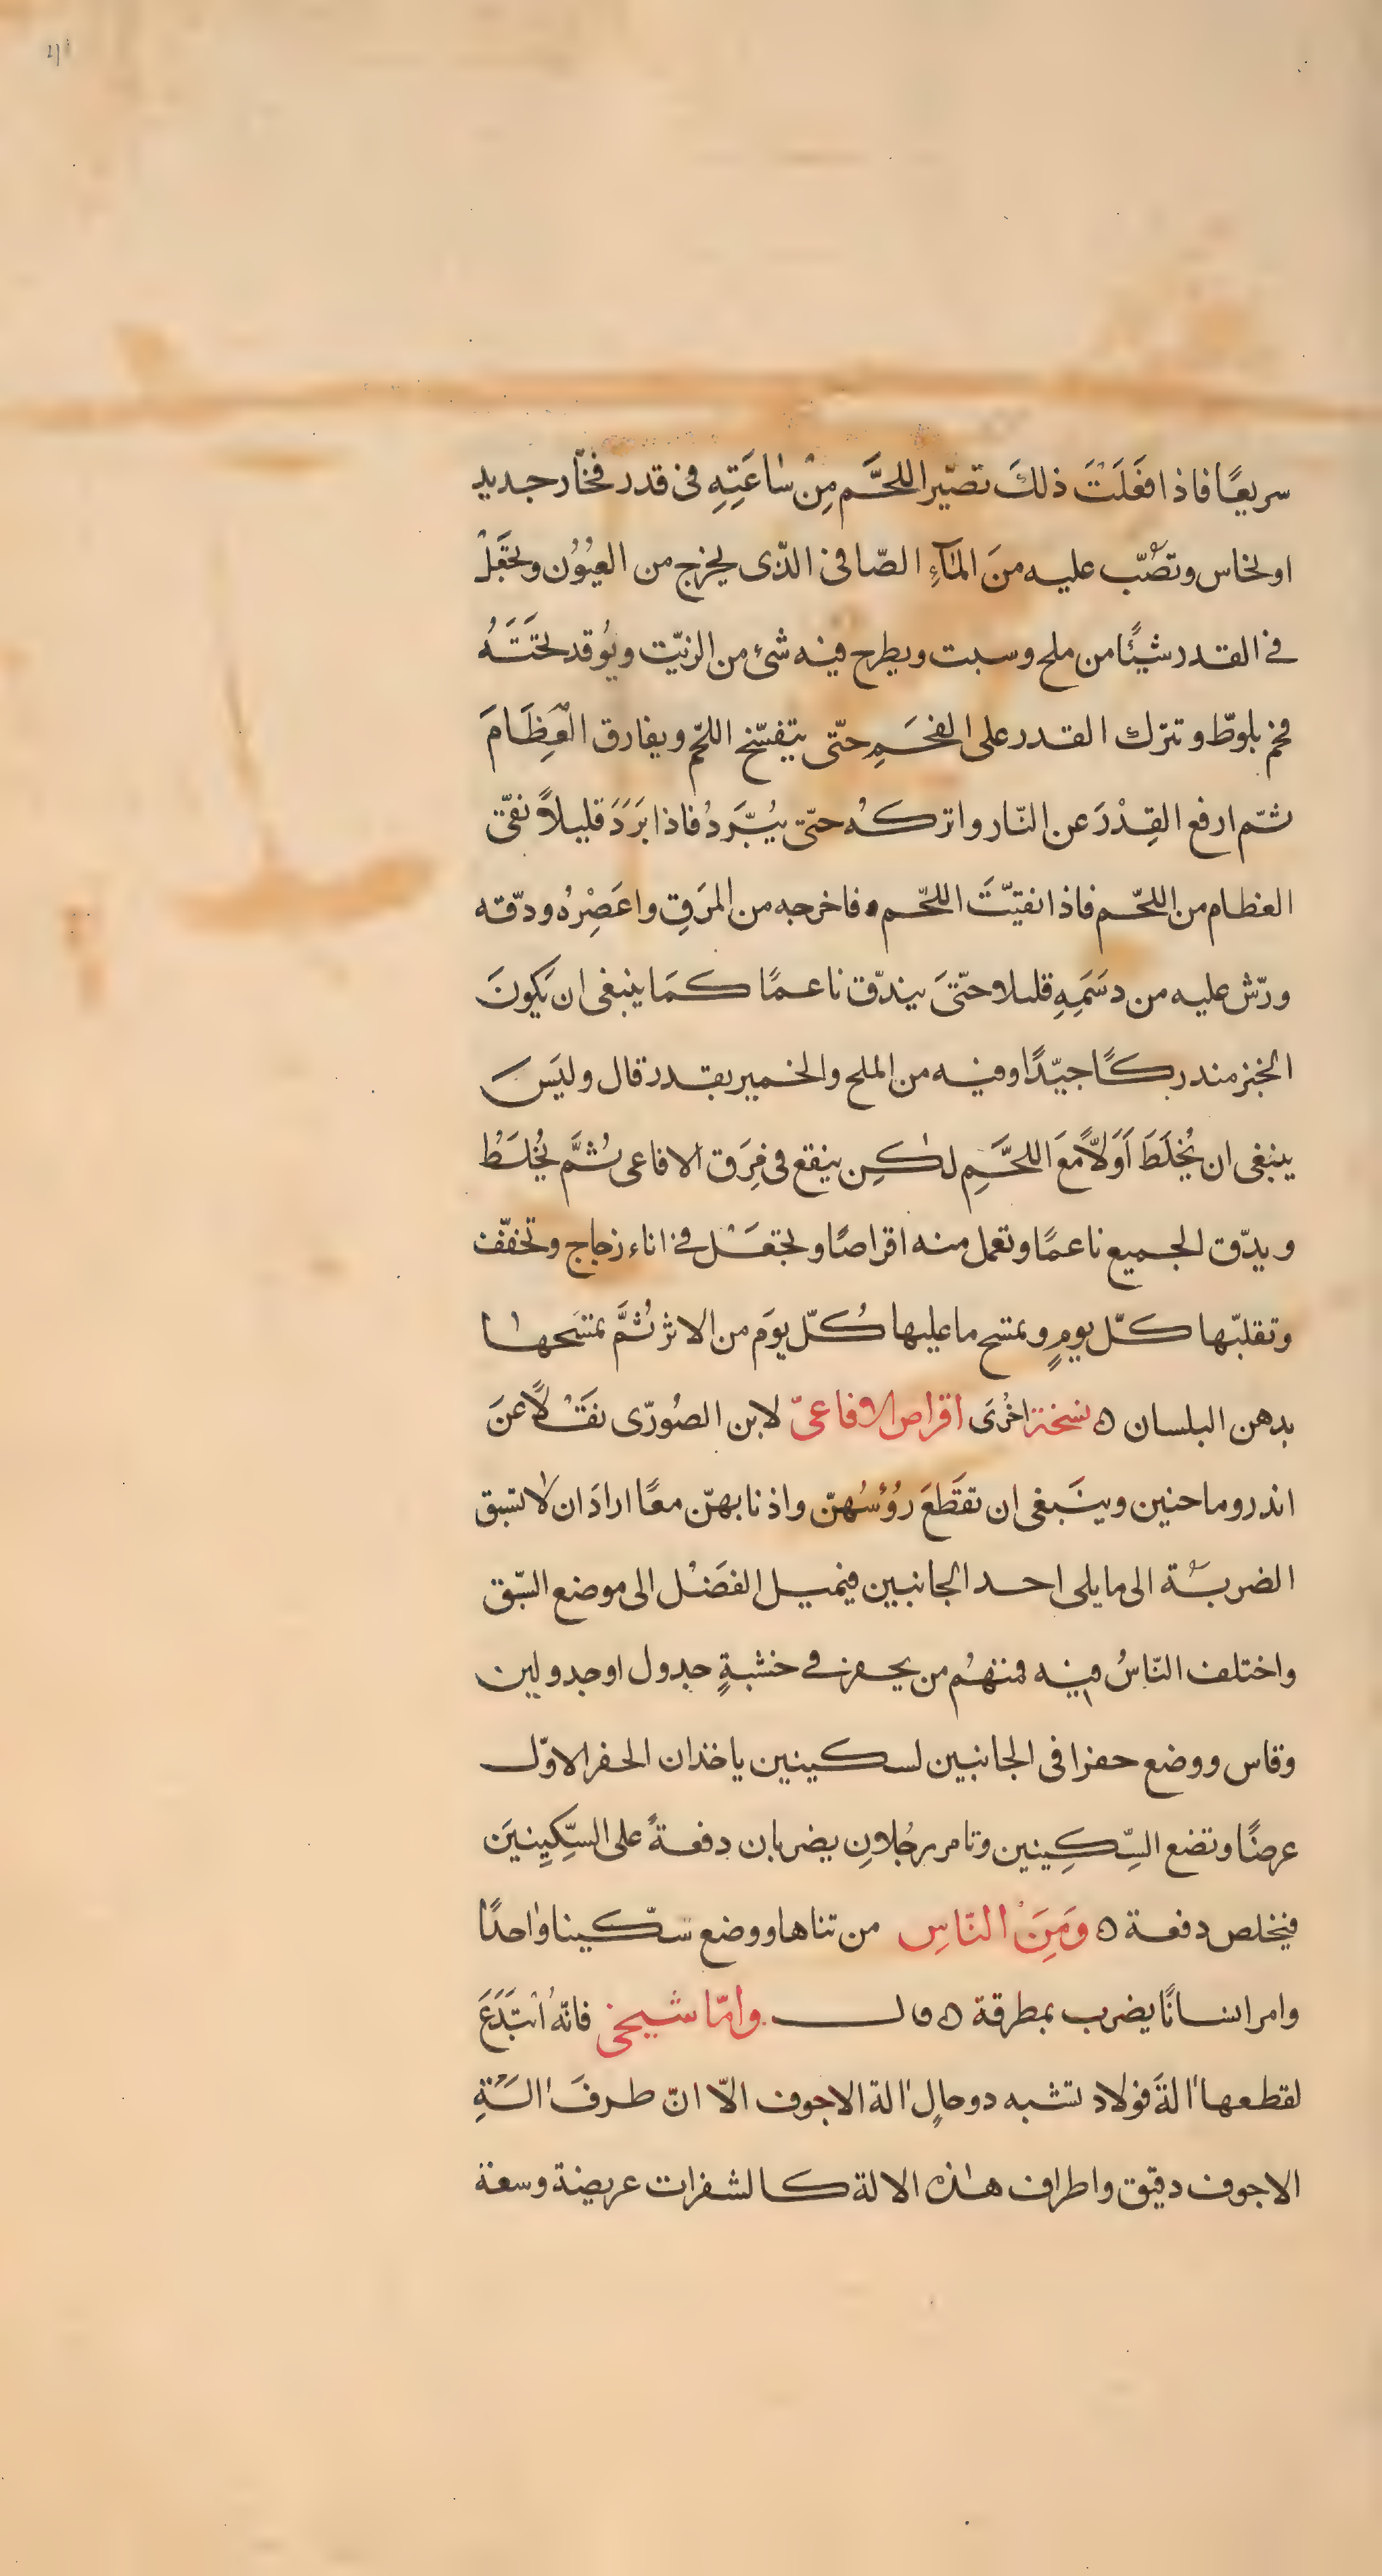 سريعًا فاذا فعَلَتَ ذلكَ تصيّر اللحَّم مِنْ سٰاعَتِهِ فى قدر فخّار جديد
او نحاس وتصُبّ عليه منَ المآءِ الصّافى الذّى يخرج من العيُوُن وتجعَلْ
فى القدر شيئًا من ملح وسبت ويطرح فيه شئ من الزيّت ويُوقد تحَتَهُ
فحم بلوطّ وتترك القدر على الفحَمِ حتّى يتفسّخ اللحّم ويفارق العِظَامَ
ثمّ ارفع القِدْرَ عن النّار واتركهُ حتّى يُبَّردُ فاذا بَرَدَ قليلاً نقىّ
العظام من اللحّم فاذا نقيّتَ اللحّم فاخرجه من المرَقِ واعَصِرْهُ ودقّه
ورّش عليه من دسَمِهِ قليلا حتّىَ يندّق ناعمًا كمَا ينبغى ان يَكونَ
الخبز مندركًا جيّدًا وفيه من الملح والخمير بقدر قال وليَسَ
ينبغى ان يُخلَطَ اَوَلاًّ معَ اللحَّمِ لٰكِن ينقع فى مِرَق الافاعى ثُمَّ يُخلَطُ
ويدّق الجميع ناعمًا وتعمل منه اقراصًا وتجعَلْ فى اناء زجاج وتخفّف
وتقلبّها كلّ يومٍ وتمسح ما عليها كُلّ يوَم من الاثر ثُمَّ تمسَحهٰا
بدهن البلسان ه نسخة اخْرىَ اقراص الافاعىّ لابن الصُورّى نقَلًا عنَ
اندروماحنين وينَبغى ان تقَطَعَ رؤُسُهنّ واذنابهنّ معًا ارادَ ان لٰا تسبق
الضربَة الى ما يلى احد الجانبين فيميل الفضَلْ الى موضع السّبق
واختلف النّاسُ فيه فمنهُم من يحفر فى خشبةٍ جدول او جدولين
وقاس ووضع حفرا فى الجانبين لسكينين ياخذان الحفر الاوّل
عرضًا وتضع السِّكِينين وتامر برجُلانِ يضربان دفعةً على السِّكِينينَ
فيخلص دفعة ه وَمِنَ النّاسِ من تناها ووضع سّكينا وٰاحدًا
وامر انسانًا يضرب بمطرقة ه قال وامّا شيخى فانّهُ اْبتَدَعَ
لقطعها اٰلةَ فولاد تشبه دوحالٍ اٰلة الاجوف الّا انّ طرفَ السَّةِ
الاجوف دقيق واطراف هٰذه الالة كالشفرات عريضة وسعة